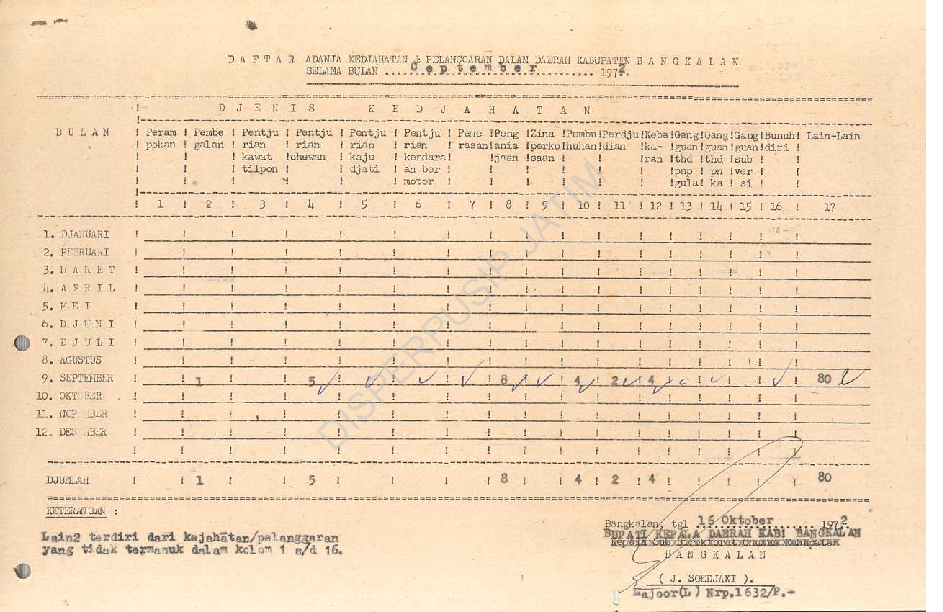 DAFTAR ADANJA KEDJAHATAN & PELANGGARAN DALAM DAERAH KABUPATEN BANGKALAN
SELAMA BULAN ...September............ 1972.
DJENIS KEDJAHATAN
BULAN ! Peram pokan ! Pembe galan ! Pentju rian kawat tilipon ! Pentju rian chewan ! Pentju rian kaju djati ! Pentju rian kendara an ber motor ! Peng ania jaan ! Zina perko saan ! Pembu nuhan ! Perdju dian ! Keba ka- ran ! Gang guan thd pnp gula ! Gang guan thd pn ka ! Gang guan sub ver si ! Bunuh diri ! Lain-Lain
! 1 ! 2 ! 3 ! 4 ! 5 ! 6 ! 7 ! 8 ! 9 ! 10 ! 11 ! 12 ! 13 ! 14 ! 15 ! 16 ! 17
1. DJANUARI
2. PEBRUARI
3. MARET
4. APRIL
5. MEI
6. DJUNI
7. DJULI
8. AGUSTUS
9. SEPTEMBER 1 5 8 4 2 4 80
10. OKTOBER
11. NOPEMBER
12. DESEMBER
DJUMLAH 1 5 8 4 2 4 80
KETERANGAN :
Lain2 terdiri dari kajahatan/pelanggaran
yang tidak termasuk dalam kolom 1 s/d 16.
Bangkalan, tgl 16 Oktober 1972
BUPATI KEPALA DAERAH KABI BANGKALAN
BANGKALAN
( J. SOEDJAKI ).
Majoor(L) Nrp.1632/P.-
DISPERPUSIP JATIM